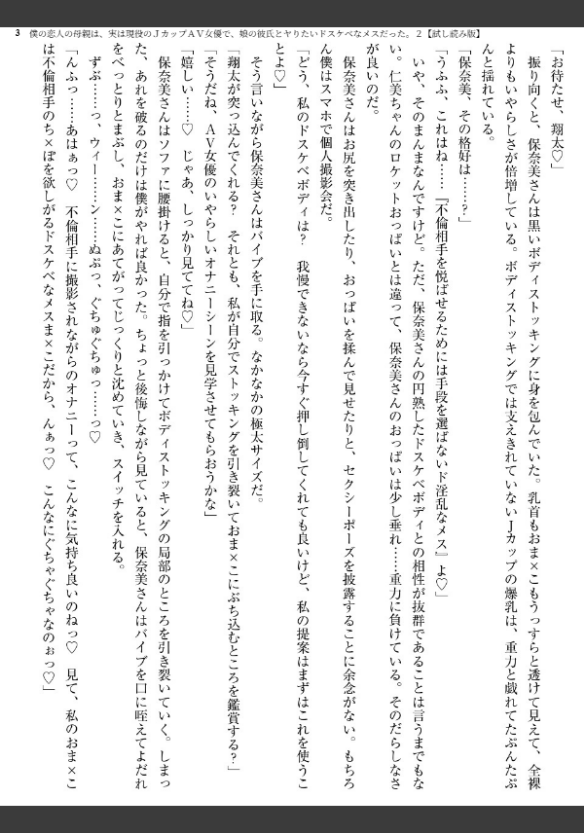 3 僕の恋人の母親は、実は現役のJカップAV女優で、娘の彼氏とヤりたいドスケベなメスだった。2【試し読み版】
「お待たせ、翔太♡」
振り向くと、保奈美さんは黒いボディストッキングに身を包んでいた。乳首もおま×こもうっすらと透けて見えて、全裸
よりもいやらしさが倍増している。ボディストッキングでは支えきれていないJカップの爆乳は、重力と戯れてたぷんたぷ
んと揺れている。
「保奈美、その格好は……?」
「うふふ、これはね……『不倫相手を悦ばせるためには手段を選ばないド淫乱なメス』よ♡」
いや、そのまんまなんですけど。ただ、保奈美さんの円熟したドスケベボディとの相性が抜群であることは言うまでもな
い。仁美ちゃんのロケットおっぱいとは違って、保奈美さんのおっぱいは少し垂れ……重力に負けている。そのだらしなさ
が良いのだ。
保奈美さんはお尻を突き出したり、おっぱいを揉んで見せたりと、セクシーポーズを披露することに余念がない。もちろ
ん僕はスマホで個人撮影会だ。
「どう、私のドスケベボディは? 我慢できないなら今すぐ押し倒してくれても良いけど、私の提案はまずはこれを使うこ
とよ♡」
そう言いながら保奈美さんはバイブを手に取る。なかなかの極太サイズだ。
「翔太が突っ込んでくれる? それとも、私が自分でストッキングを引き裂いておま×こにぶち込むところを鑑賞する?」
「そうだね、AV女優のいやらしいオナニーシーンを見学させてもらおうかな」
「嬉しい……♡ じゃあ、しっかり見ててね♡」
保奈美さんはソファに腰掛けると、自分で指を引っかけてボディストッキングの局部のところを引き裂いていく。しまっ
た、あれを破るのだけは僕がやれば良かった。ちょっと後悔しながら見ていると、保奈美さんはバイブを口に咥えてよだれ
をべっとりとまぶし、おま×こにあてがってじっくりと沈めていき、スイッチを入れる。
ずぶ……っ、ウィー……ン……ぬぷっ、ぐちゅぐちゅっ……っ♡
「んふっ……あはぁっ♡ 不倫相手に撮影されながらのオナニーって、こんなに気持ち良いのねっ♡ 見て、私のおま×こ
は不倫相手のち×ぽを欲しがるドスケベなメスま×こだから、んぁっ♡ こんなにぐちゃぐちゃなのぉっ♡」